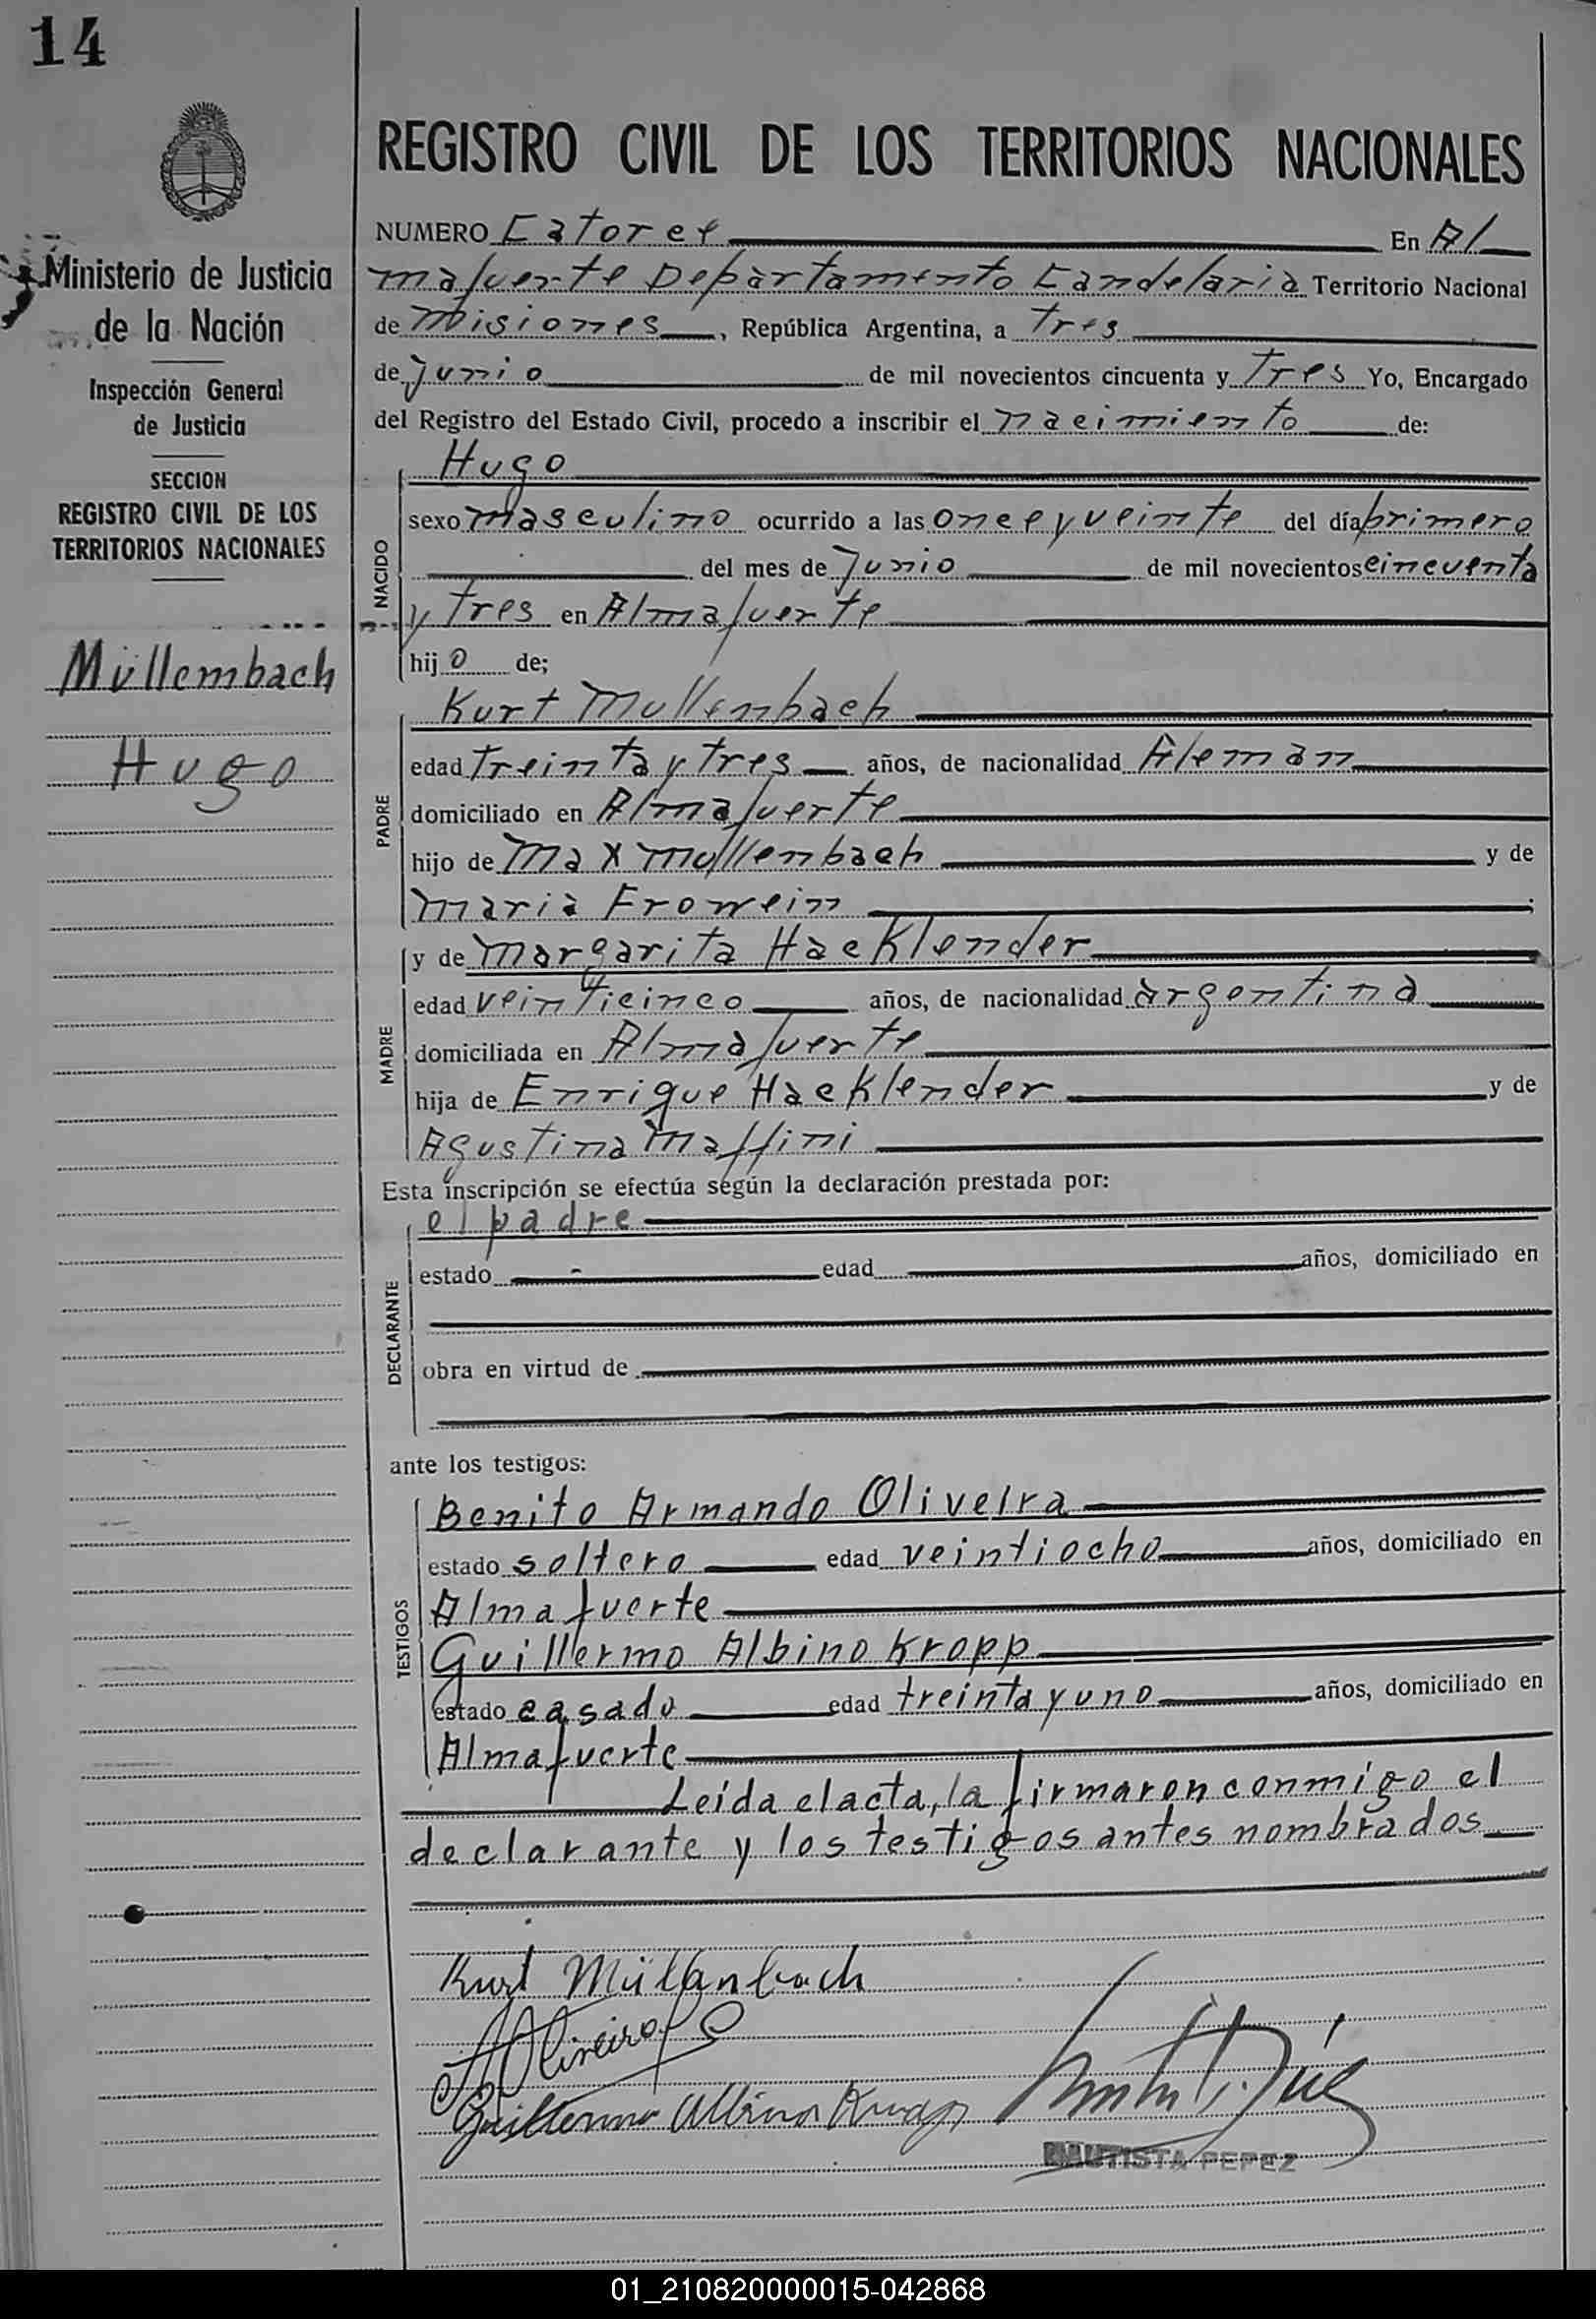 14
REGISTRO CIVIL DE LOS TERRITORIOS NACIONALES
Ministerio de Justicia
de la Nación
Inspección General
de Justicia
SECCION
REGISTRO CIVIL DE LOS
TERRITORIOS NACIONALES
Müllembach
Hugo
NUMERO Catorce En Al
mafuerte Departamento Candelaria Territorio Nacional
de Misiones, República Argentina, a tres
de Junio de mil novecientos cincuenta y tres Yo, Encargado
del Registro del Estado Civil, procedo a inscribir el nacimiento de:
NACIDO
Hugo
sexo masculino ocurrido a las once y veinte del día primero
del mes de Junio de mil novecientos cincuenta
y tres en Almafuerte
hijo de;
PADRE
Kurt Mullenbach
edad treinta y tres años, de nacionalidad Aleman
domiciliado en Almafuerte
hijo de Max Mullenbach y de
Maria Frowein ;
MADRE
y de Margarita Hacklender
edad veinticinco años, de nacionalidad argentina
domiciliada en Almafuerte
hija de Enrique Hacklender y de
Agustina Maffini
Esta inscripción se efectúa según la declaración prestada por:
DECLARANTE
el padre
estado edad años, domiciliado en
obra en virtud de
ante los testigos:
TESTIGOS
Benito Armando Oliveira
estado soltero edad veintiocho años, domiciliado en
Almafuerte
Guillermo Albino Kropp
estado casado edad treinta y uno años, domiciliado en
Almafuerte
Leída el acta, la firmaron conmigo el
declarante y los testigos antes nombrados
Kurt Müllenbach
A Oliveira
Guillermo Albino Kropp
BAUTISTA PEREZ
01_210820000015-042868